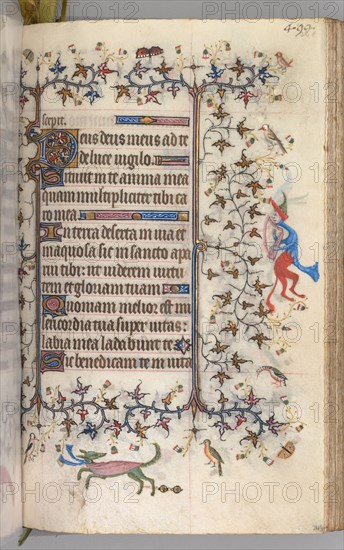 4-92
scepit.
Deus deus meus ad te
de luce uigilo.
Sitiuit in te anima mea
quam multipliciter tibi ca
ro mea.
In terra deserta in uia et
inaquosa sic in sancto appa
rui tibi: ut uiderem uirtu
tem et gloriam tuam.
Quoniam melior est mi
sericordia tua super uitas:
labia mea laudabunt te.
Sic benedicam te in uita
PHOTO12